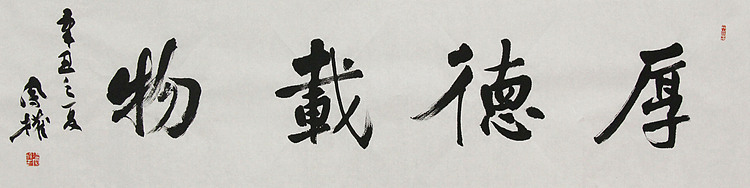 厚德載物
辛丑之夏